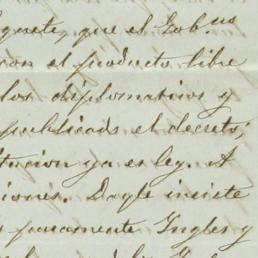 que el Gob.us
con el producto libre
los diplomaticos y
publicado el decreto;
tucion ya es ley. A
iones. Doyle insiste
puramente Ingles y